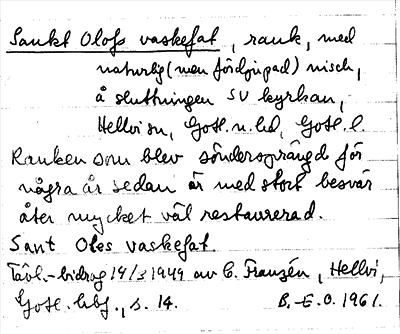 Sankt Olofs vaskefat, rauk, med
naturlig (men fördjupad) nisch,
å sluttningen SV kyrkan,
Hellvi sn, Gotl. n. hd, Gotl. l.
Rauken som blev söndersprängd för
några år sedan är med stort besvär
åter mycket väl restaurerad.
Sant Oles vaskefat.
Tävl.-bidrag 14/3 1949 av C. Franzén, Hellvi,
Gotl. hbf., s. 14. B.-E.O. 1961.